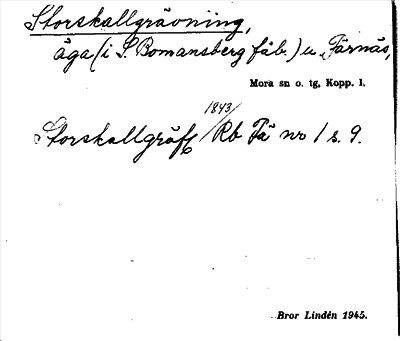 Storskallgrävning,
äga (i S. Bomansberg fäb.) u. Färnäs,
Mora sn o. tg, Kopp. l.
Storskallgräft 1843/ Rb Fä nr 1 s. 9.
Bror Lindén 1945.